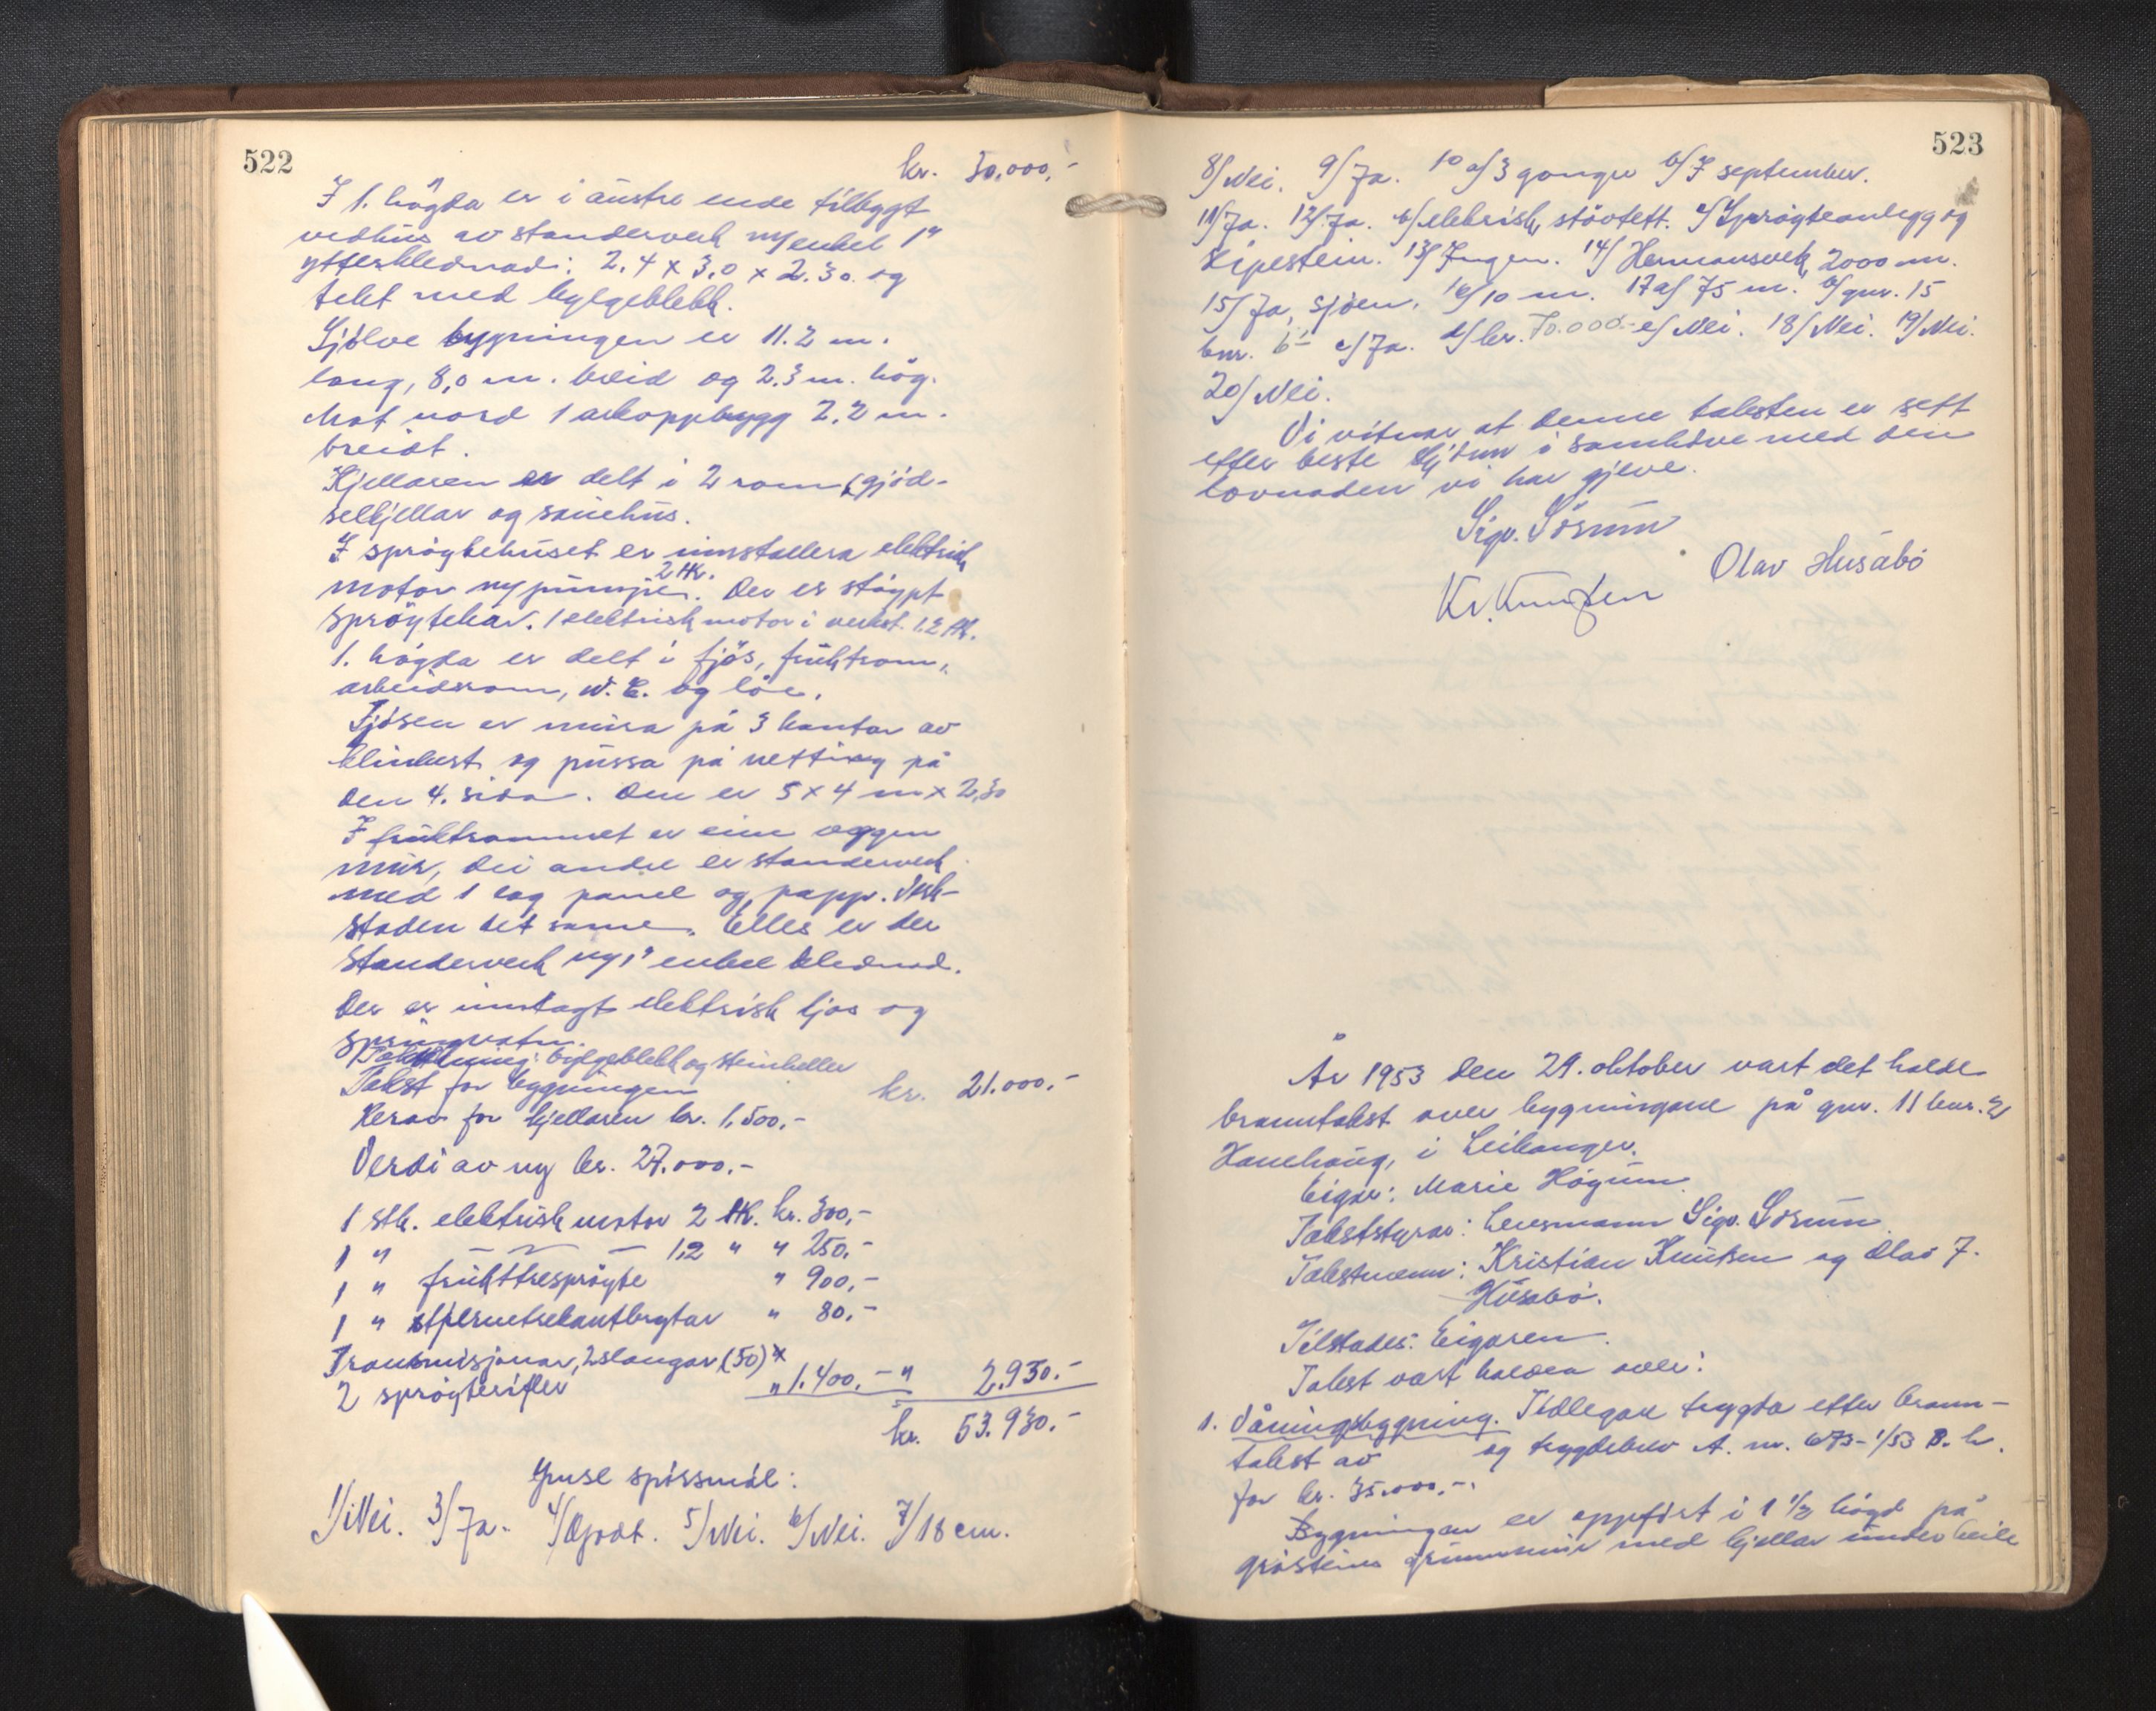 522
kr. 30.000,-
I 1. högda er i austre ende tilbygt
vedhus av standerverk m/enkel 1"
ytterklednad: 2.4 x 3,0 x 2.30 og
tekt med bylgeblekk.
Sjölve bygningen er 11.2 m.
lang, 8,0 m. breid og 2.3 m. hög.
Mot nord 1 arkoppbygg 2.2 m.
breidt.
Kjellaren er delt i 2 rom, gjöd-
selkjellar og sauehus.
I spröytehuset er innstallera elektrisk
motor m/pumpe. 2 Hk. Der er stöypt
spröytekar. 1 elektrisk motor i verkst. 1,2 Hk.
1. högda er delt i fjös, fruktrom,
arbeidsrom, W.C. og löe.
Fjösen er mura på 3 kantar av
klinkust og pussa på netting på
den 4. sida. Den er 5 x 4 m x 2,30
I fruktrommet er ein veggen
mur, dei andre er standerverk
med 1 lag panel og papp. Verk-
staden det same. Elles er der
standerverk m/1" enkel klednad.
Der er innlagt elektrisk ljos og
springvatn.
Taktekning: bylgeblekk og steinheller
Takst for bygningen kr. 21.000.-
Herav for kjellaren kr. 1.500,-
Verdi av ny kr. 27.000.-
1 stk. elektrisk motor 2 Hk. kr. 300,-
1 " — " — 1,2 " " 250,-
1 " frukttrespröyte " 900,-
1 " stjernetrekantbrytar " 80,-
Transmisjonar, 2 slangar (50) x
2 spröyterifler " 1.400,- " 2.930.-
kr. 53.930.-
Ymse spörsmål:
1/ Nei. 3/ Ja. 4/ Godt. 5/ Nei. 6/ Nei. 7/ 18 cm.
523
8/ Nei. 9/ Ja. 10 a/ 3 gonger b/ I september.
11/ Ja. 12/ Ja. b/ elektrisk, stövtett. c/ Spröyteanlegg og
slipestein. 13/ Ingen. 14/ Hermansverk, 2000 m.
15/ Ja, sjöen. 16/ 10 m. 17 a/ 75 m. b/ gnr. 15
bnr. 6 c/ Ja. d/ kr. 70.000.- e/ Nei. 18/ Nei. 19/ Nei.
20/ Nei.
Vi vitnar at denne taksten er sett
etter beste skjönn i samhöve med den
lovnaden vi har gjeve.
Sigv. Sörum
Olav Husabö
Kr. Knutsen
År 1953 den 29. oktober vart det halde
branntakst over bygningane på gnr. 11 bnr. 2
Hanehaug, i Leikanger.
Eigar: Marie Högum.
Takststyrar: Lensmann Sigv. Sörum.
Takstmenn: Kristian Knutsen og Olav J.
Husabö.
Tilstades: Eigaren.
Takst vart halden over:
1. Våningsbygning. Tidlegare trygda etter brann-
takst av og trygdebrev A. nr. 673-1/53 B. h.
for kr. 35.000,-.
Bygningen er oppfört i 1 1/2 högd på
gråsteins grunnmur med kjellar under heile